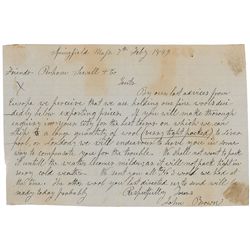 Springfield Mass 3rd Feby 1849
Friends Perham Sewell & Co
Gents
By our last advices from
Europe we perceive that we are holding our fine wools deci-
dedly below exporting prices. If you will make thorough
enquiry in your city for the best terms on which we can
ship a large quantity of wool (very tight packed) to Liver-
pool, or London; we will endeavour to have you in some
way to compensate you for the trouble. We shall not pack
it until the weather becomes milder as it will not pack tight in
very cold weather. We sent you all No 3 wool we had at
the time. The other wool you last directed us to send will be
ready today probably
Respectfully Yours
John Brown